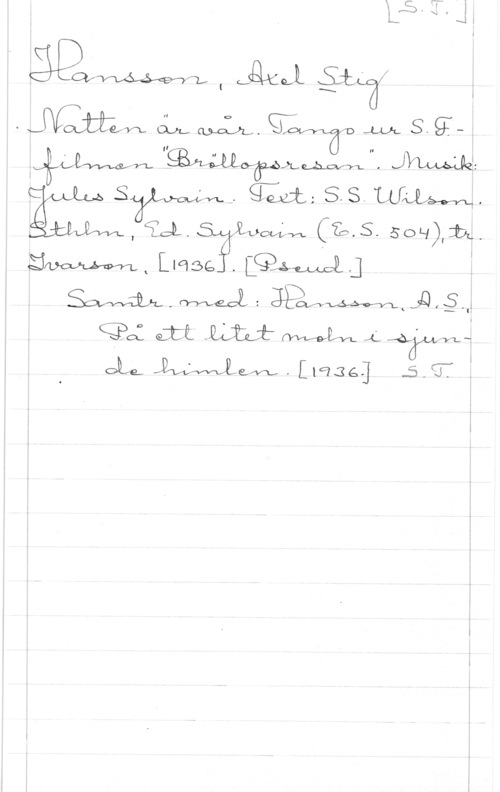 [S. T.]
Hansson, Axel Stig
Natten är vår. Tango ur S.F-
filmen "Bröllopsresan". Musik:
Jules Sylvain. Text: S.S. Wilson.
Sthlm, Ed. Sylvain (E.S. 504), tr.
Ivarson, [1936]. [Pseud.]
Samtr. med: Hansson, A.S.,
På ett litet moln i sjun-
de himlen. [1936.] S.T.